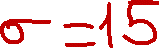 σ = 15